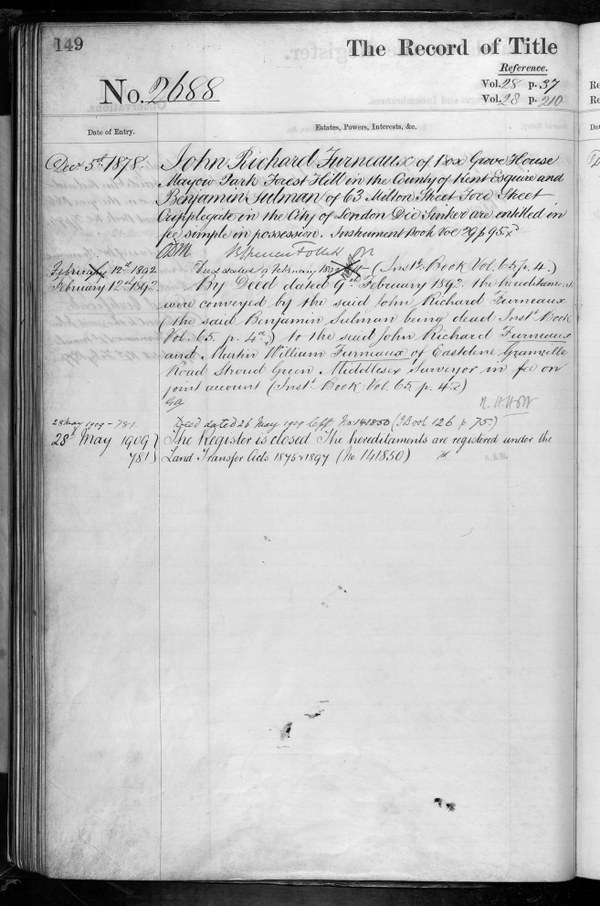 149
The Record of Title
Reference.
No. 2688
Vol. 28 p. 37
Vol. 28 p. 210
Date of Entry.
Estates, Powers, Interests, &c.
Decr 5th 1878
John Richard Furneaux of Box Grove House
Mayow Park Forest Hill in the County of Kent Esquire and
Benjamin Sulman of 63 Milton Street Fore Street
Cripplegate in the City of London Die Sinker are entitled in
fee simple in possession. Instrument Book Vol 29 p 95
February 12th 1892
Deed dated 9 February (Inst. Book Vol. 65 p. 4.)
February 12th 1892
By Deed dated 9th February 1892 the hereditaments
were conveyed by the said John Richard Furneaux
(the said Benjamin Sulman being dead Instt Book
Vol. 65. p. 4) to the said John Richard Furneaux
and Martin William Furneaux of Granville
Road Stroud Green Middlesex Surveyor in fee on
joint account (Instt Book Vol 65 p. 4)
28 May 1909 - 781.
Deed dated 26 May 1909 left. No 141850 (I Book 126 p 75)
28th May 1909
781
The Register is closed The hereditaments are registered under the
Land Transfer Acts 1875 & 1897 (No 141850)